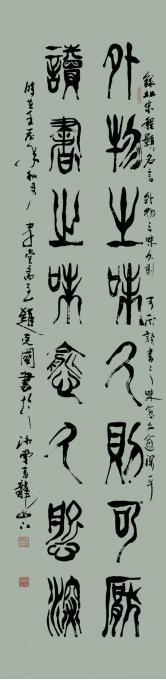 錄北宋程顥名言外物之味久則可厭讀書之味愈久愈深
外物之味久則可厭
讀書之味愈久愈深
時在壬辰秋月書於